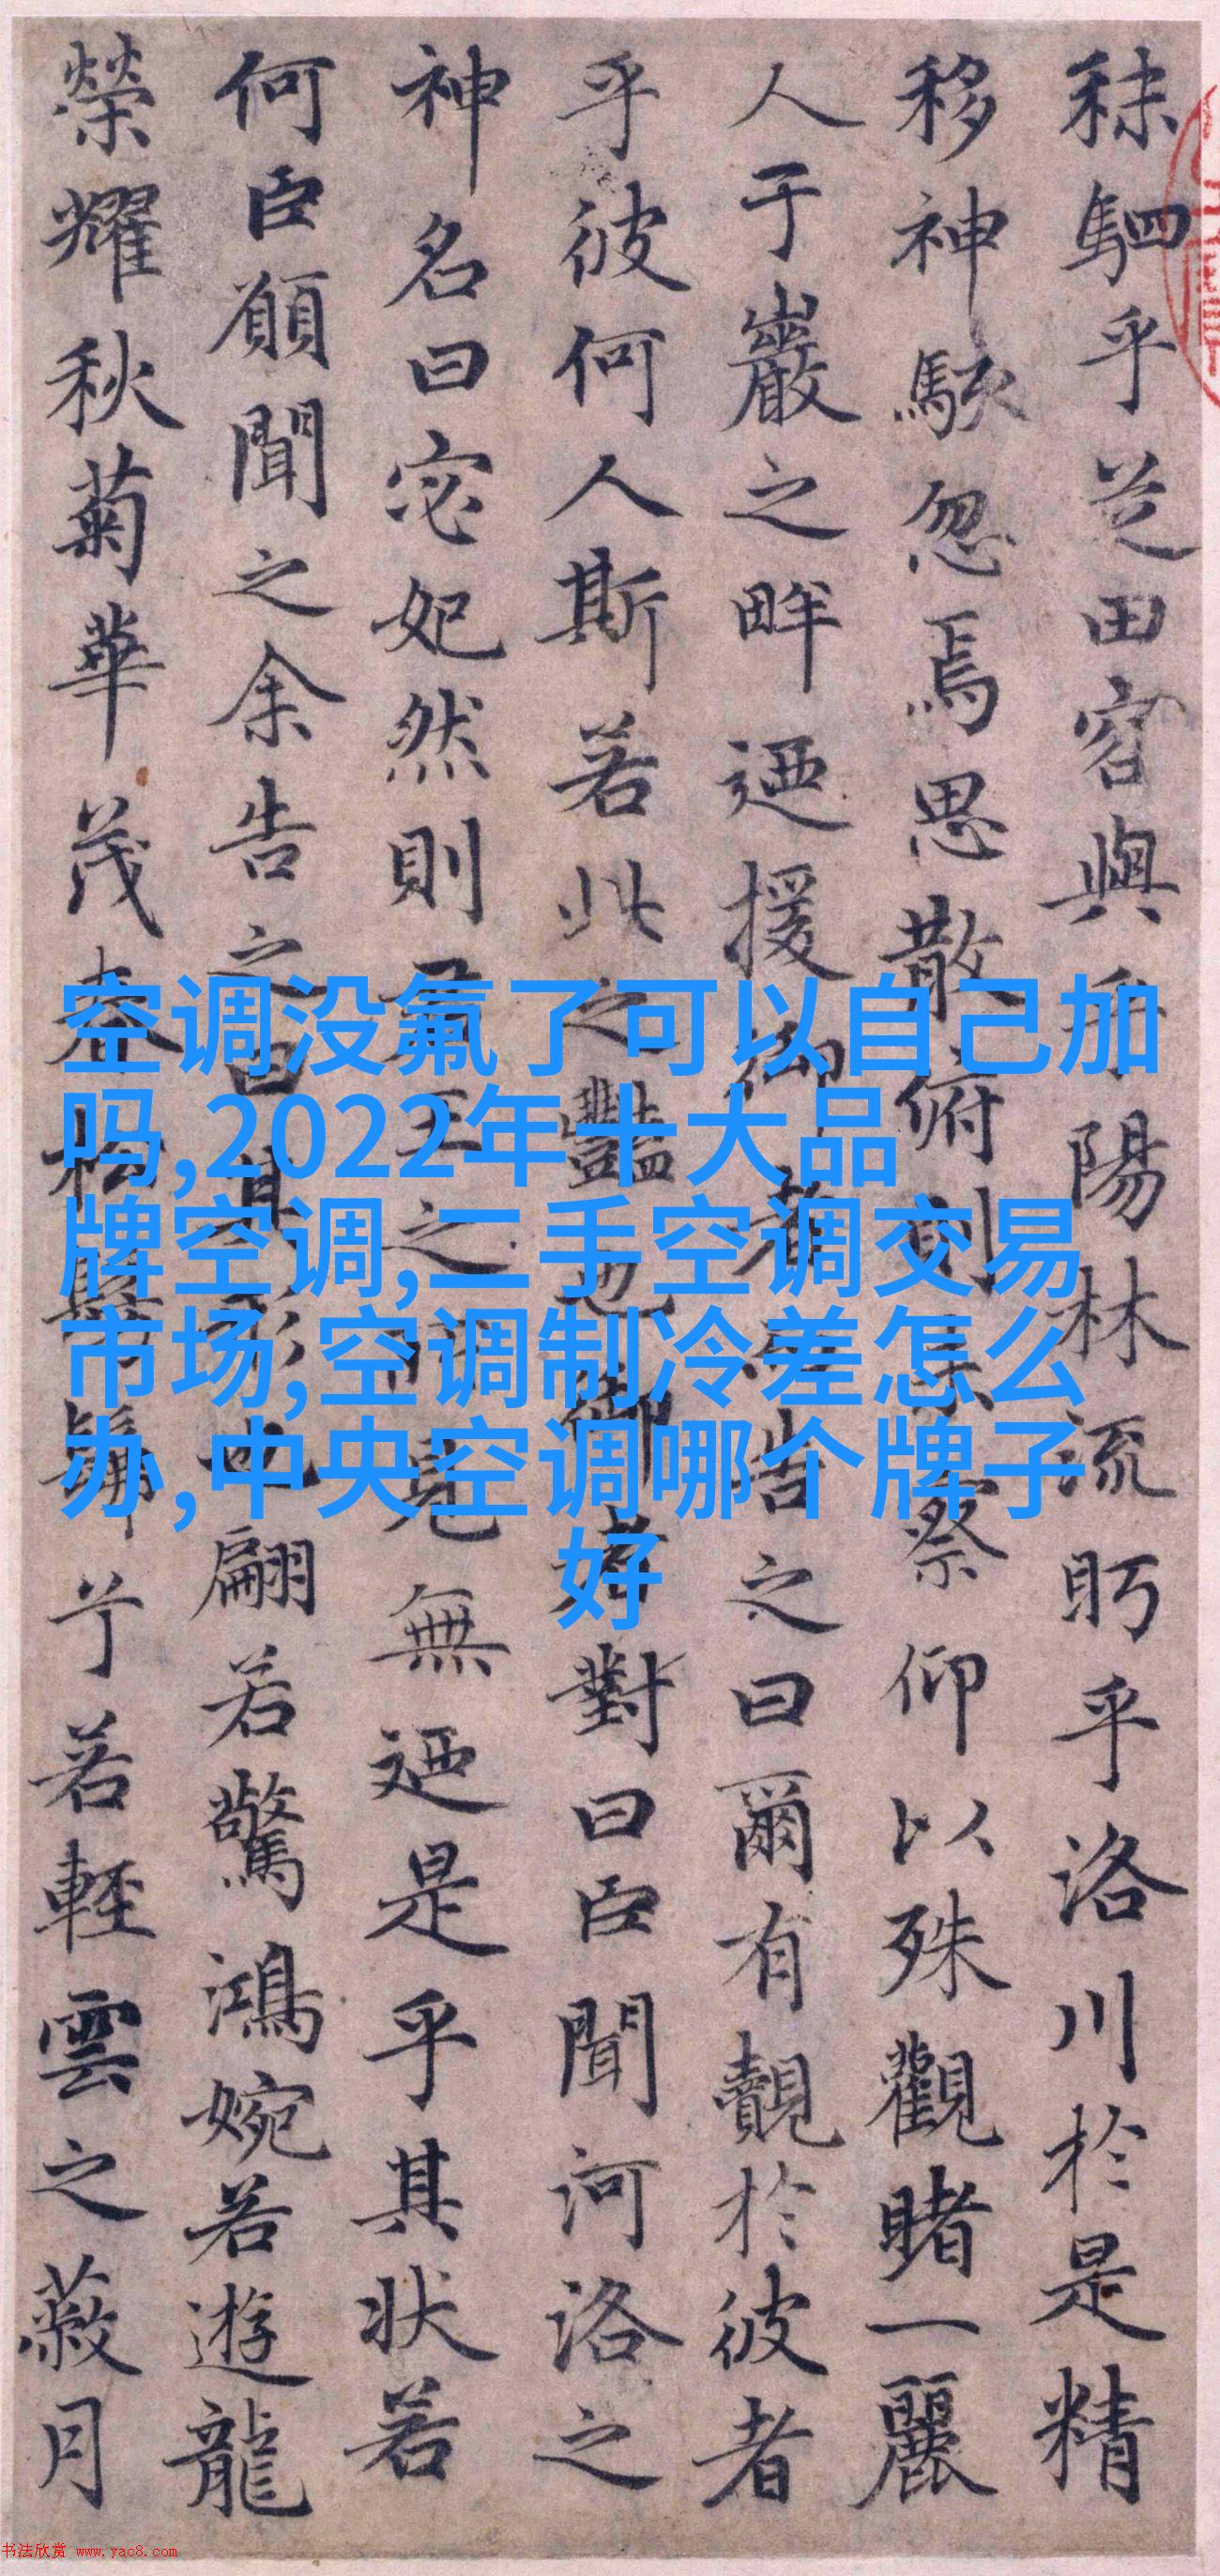 秣駟乎芝田容與乎陽林流眄乎洛川於是精
移神駭忽焉思散俯則未察仰以殊觀睹一麗
人于巖之畔迺援御者而告之曰爾有覿於彼者
乎彼何人斯若此之豔也御者對曰臣聞河洛之
神名曰宓妃然則君王之所見無迺是乎其狀若
何臣願聞之余告之曰其形也翩若驚鴻婉若遊龍
榮耀秋菊華茂春松髣髴兮若輕雲之蔽月
空调没氟了可以自己加
吗,2022年十大品
牌空调,二手空调交易
市场,空调制冷差怎么
办,中央空调哪个牌子
好
书法欣赏 www.yac8.com